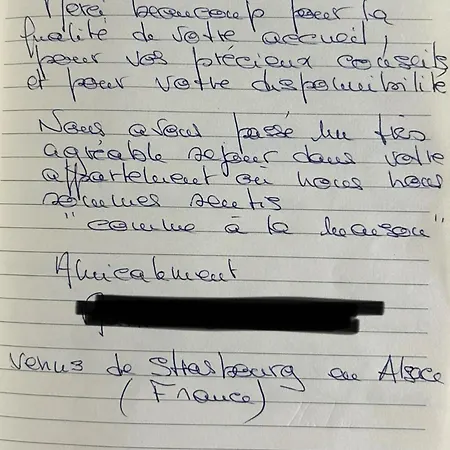 Merci beaucoup pour la
qualité de votre accueil,
pour vos précieux conseils
et pour votre disponibilité
Nous avons passé un très
agréable sejour dans votre
appartement où nous nous
sommes sentis
"comme à la maison"
Amicalement
Venus de Strasbourg en Alsace
(France)